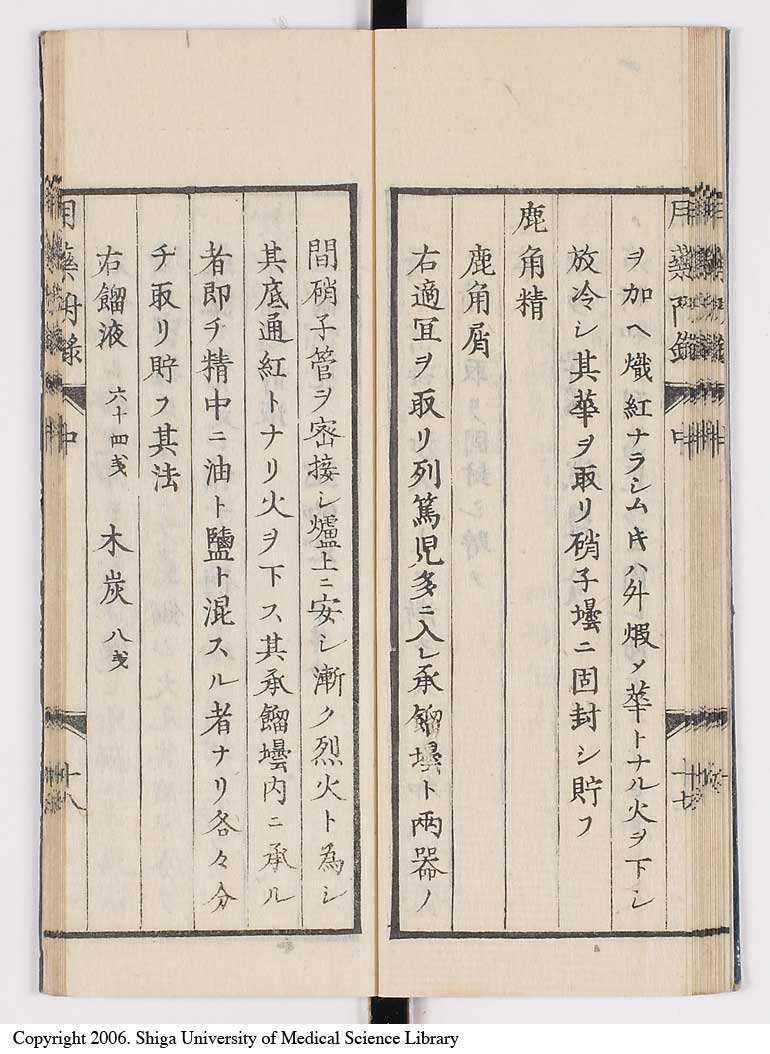 ヲ加ヘ熾紅ナラシムキハ外煆メ華トナル火ヲ下シ
放冷シ其華ヲ取リ硝子壜ニ固封シ貯フ
鹿角精
鹿角屑
右適宜ヲ取リ列篤児多ニ入レ承餾壜ト両器ノ
間硝子管ヲ密接シ爐上ニ安シ漸ク烈火ト為シ
其底通紅トナリ火ヲ下ス其承餾壜内ニ承ル
者即チ精中ニ油ト鹽ト混スル者ナリ各々分
チ取リ貯フ其法
右餾液 六十四戔 木炭 八戔
用藥附錄 中 十八
Copyright 2006. Shiga University of Medical Science Library